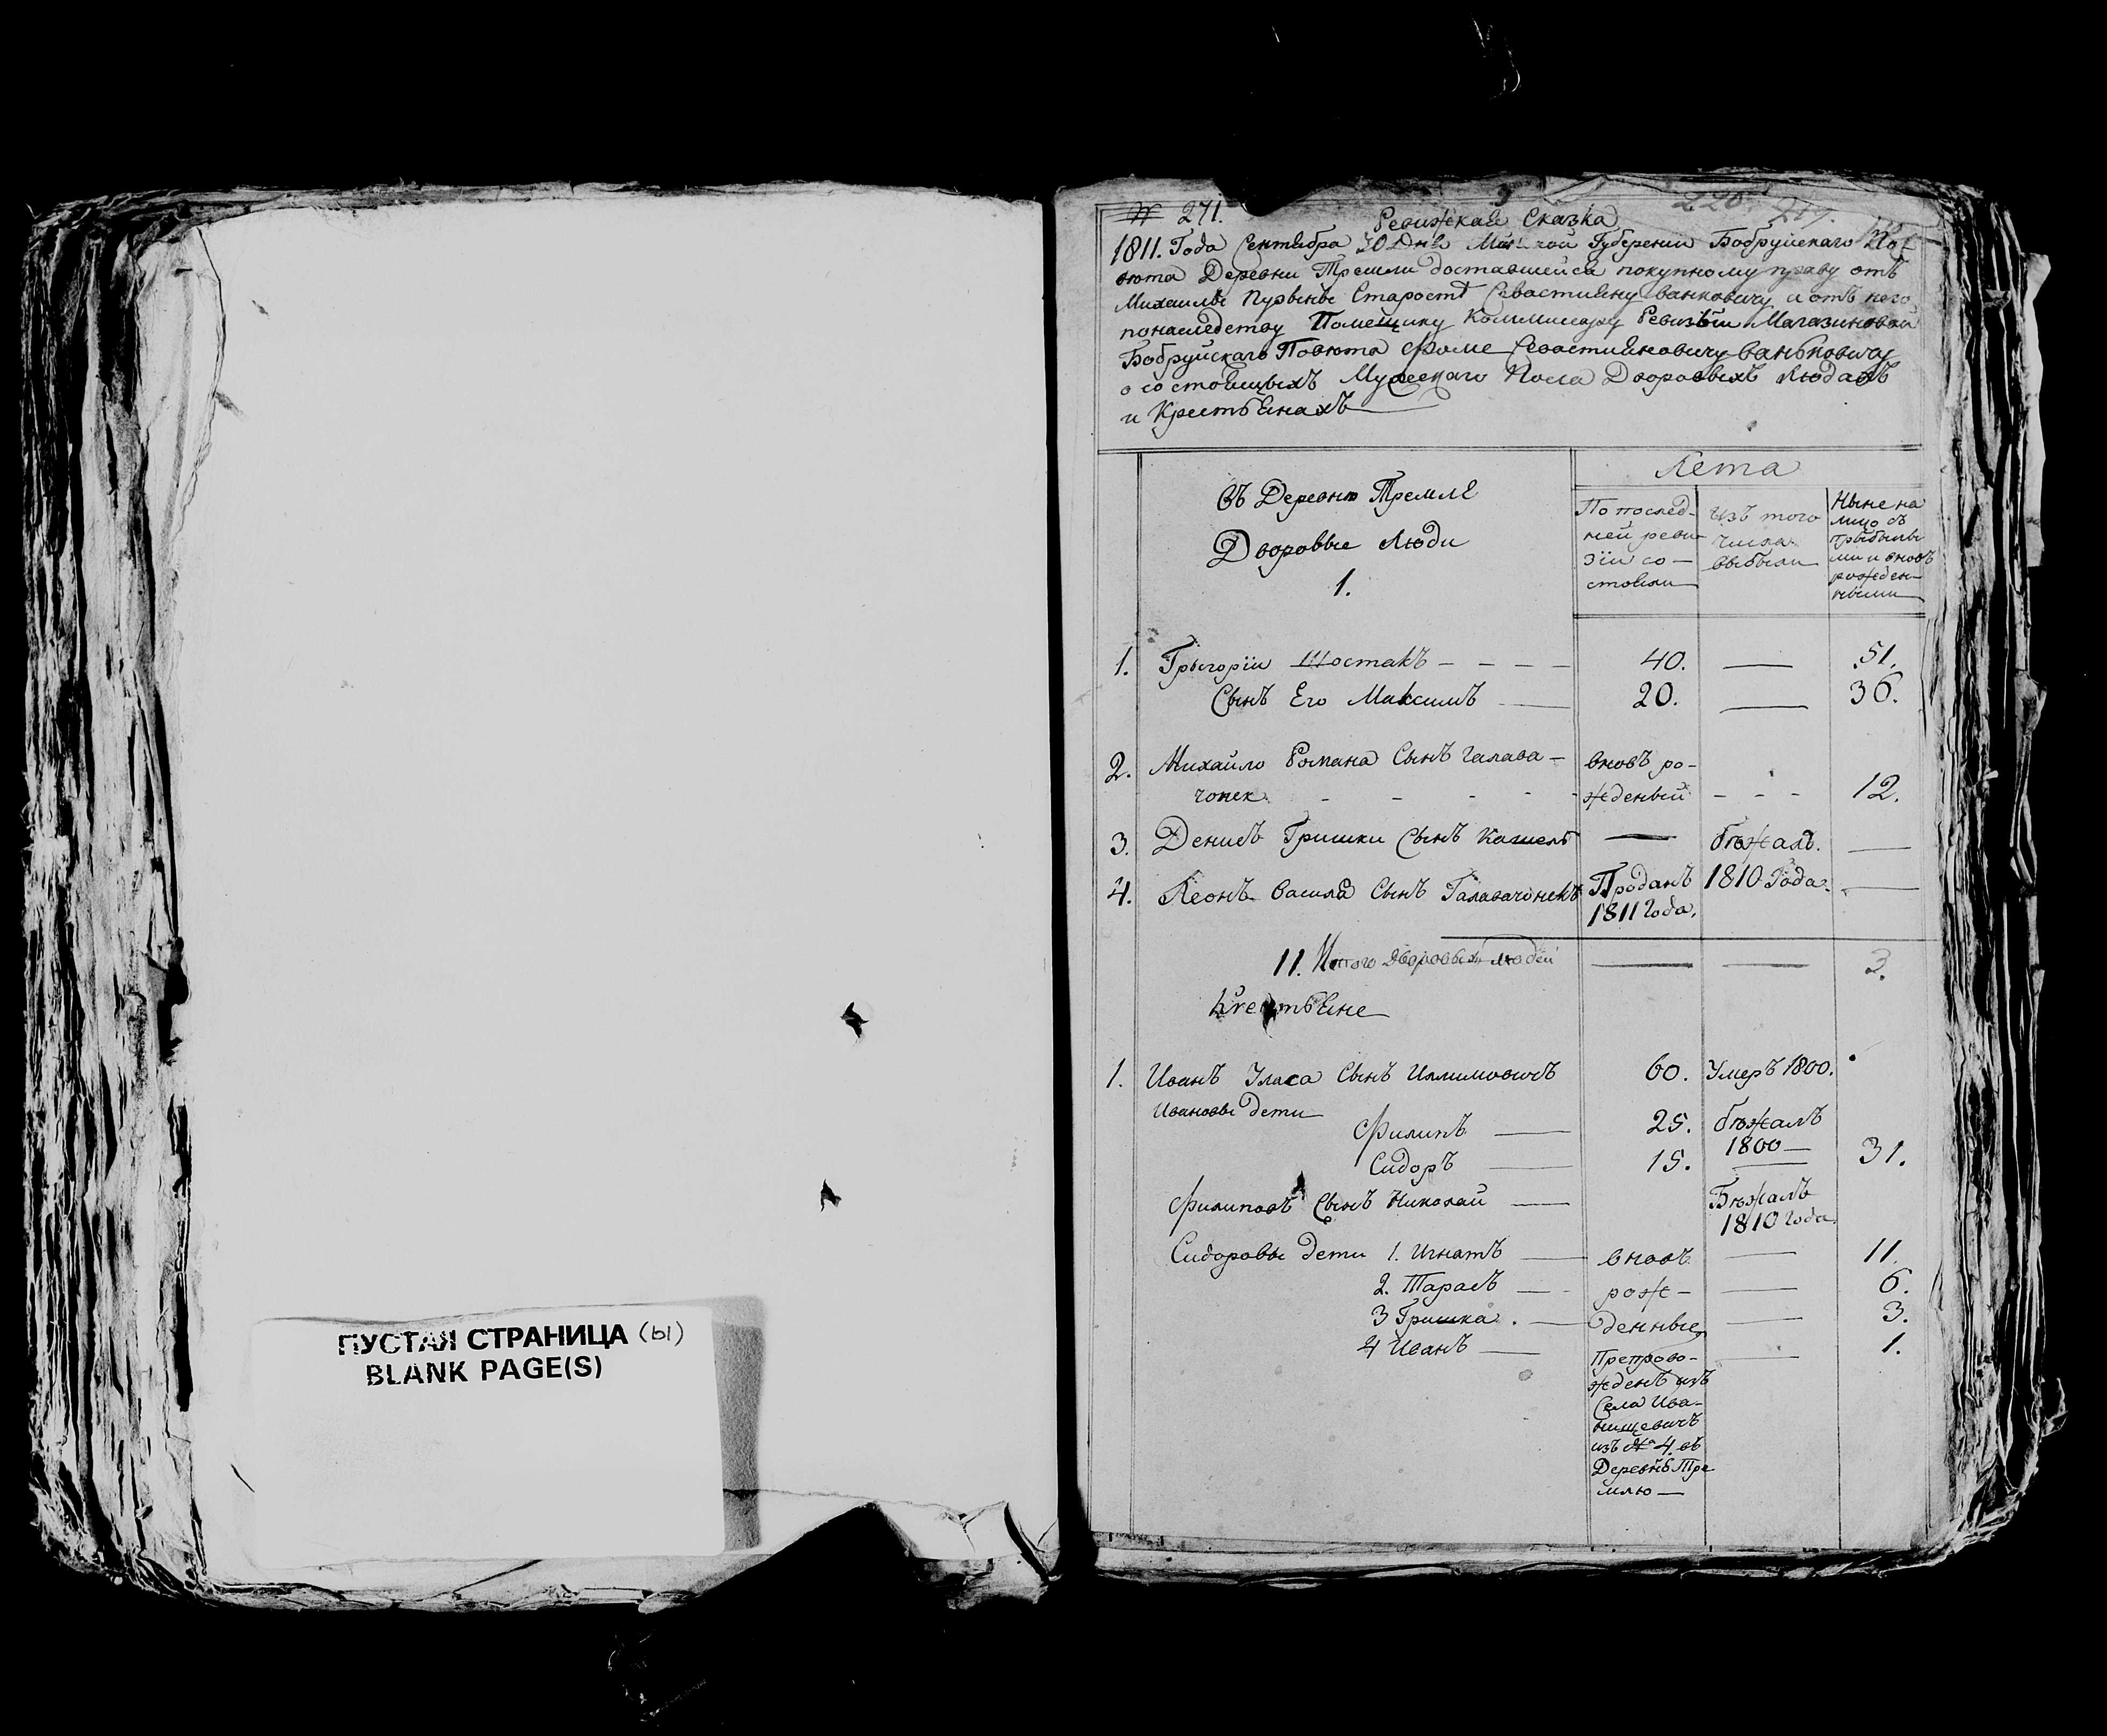 ПУСТАЯ СТРАНИЦА (ы)
BLANK PAGE(S)
№ 271.
220. 219.
Ревижская Сказка
1811. Года Сентября 30 Дня Минской Губернии Бобруйскаго Пов
ѣта Деревни Тремли доставшейся покупному праву отъ
Михаила Старостѣ Севастияну Ванковичу и отъ него
понаследству Помещику Коммисару Ревизїи Магазиновой
Бобруйскаго Повѣта Фоме Севастияновичу Ваньковичу
о состоящыхъ Мужескаго Пола Дворовыхъ Людахъ
и Крестьянахъ
Въ Деревнѣ Тремлѣ
Дворовые Люди
1.
Лета
По послед-
ней реви
зїи со-
стояли
изъ того
числа
выбыли
Ныне на
лицо съ
прыбылы
ми и вновъ
рожден-
ными
1. Грыгорїи Шостакъ - - - - 40. — 51.
Сынъ Его Максимъ — 20. — 36.
2. Михайло Романа Сынъ Галава- вновъ ро-
чонек - - - - жденый - - - 12.
3. Денисъ Гришки Сынъ Кашель — бѣжалъ. —
4. Леонъ Василя Сынъ Галавачонекъ Проданъ 1810 Года. —
1811 Года.
11. Итого дворовыхъ людей — — 3.
Крестьяне
1. Иванъ Уласа Сынъ Илимовичъ 60. Умеръ 1800.
Ивановы Дети
Филипъ — 25. бѣжалъ
1800 —
Сидоръ — 15. — 31.
Филиповъ Сынъ Николай — Бѣжалъ
1810 Года
Сидоровы Дети 1. Игнатъ — вновъ — 11.
2. Тарасъ — рож- — 6.
3 Гришка. — денные — 3.
4 Иванъ — — 1.
Препрово-
жденъ изъ
Села Ива-
нищевичъ
изъ № 4 въ
Деревнѣ Тре
млю —